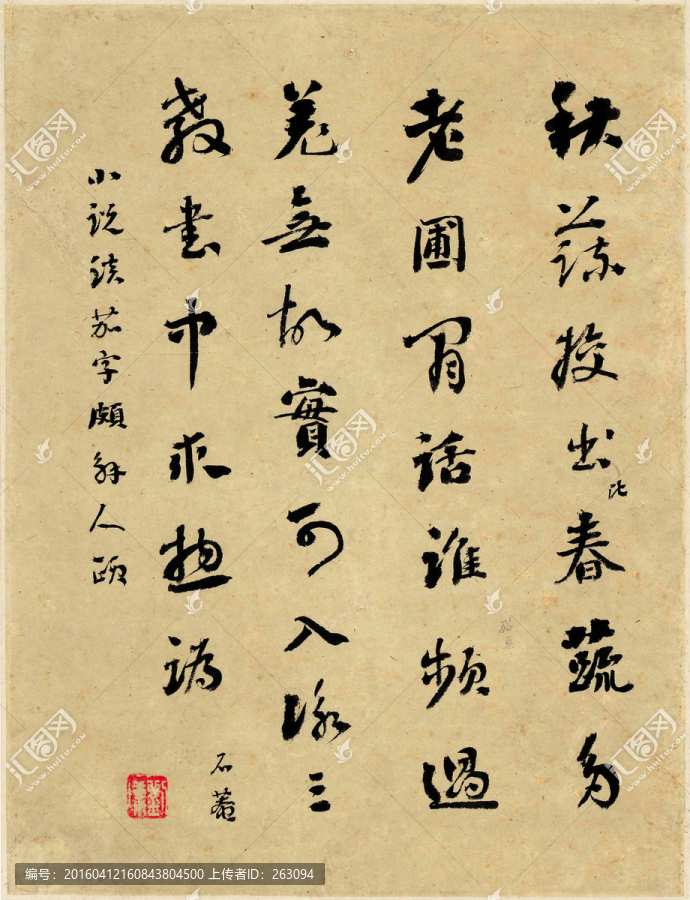 秋蔬挍出比春蔬多
老圃閒話誰頻過
羌無故實可入詠三
教書中求
小說茄字頗解人頤
石菴
汇图网
www.huitu.com
编号：20160412160843804500 上传者ID：263094